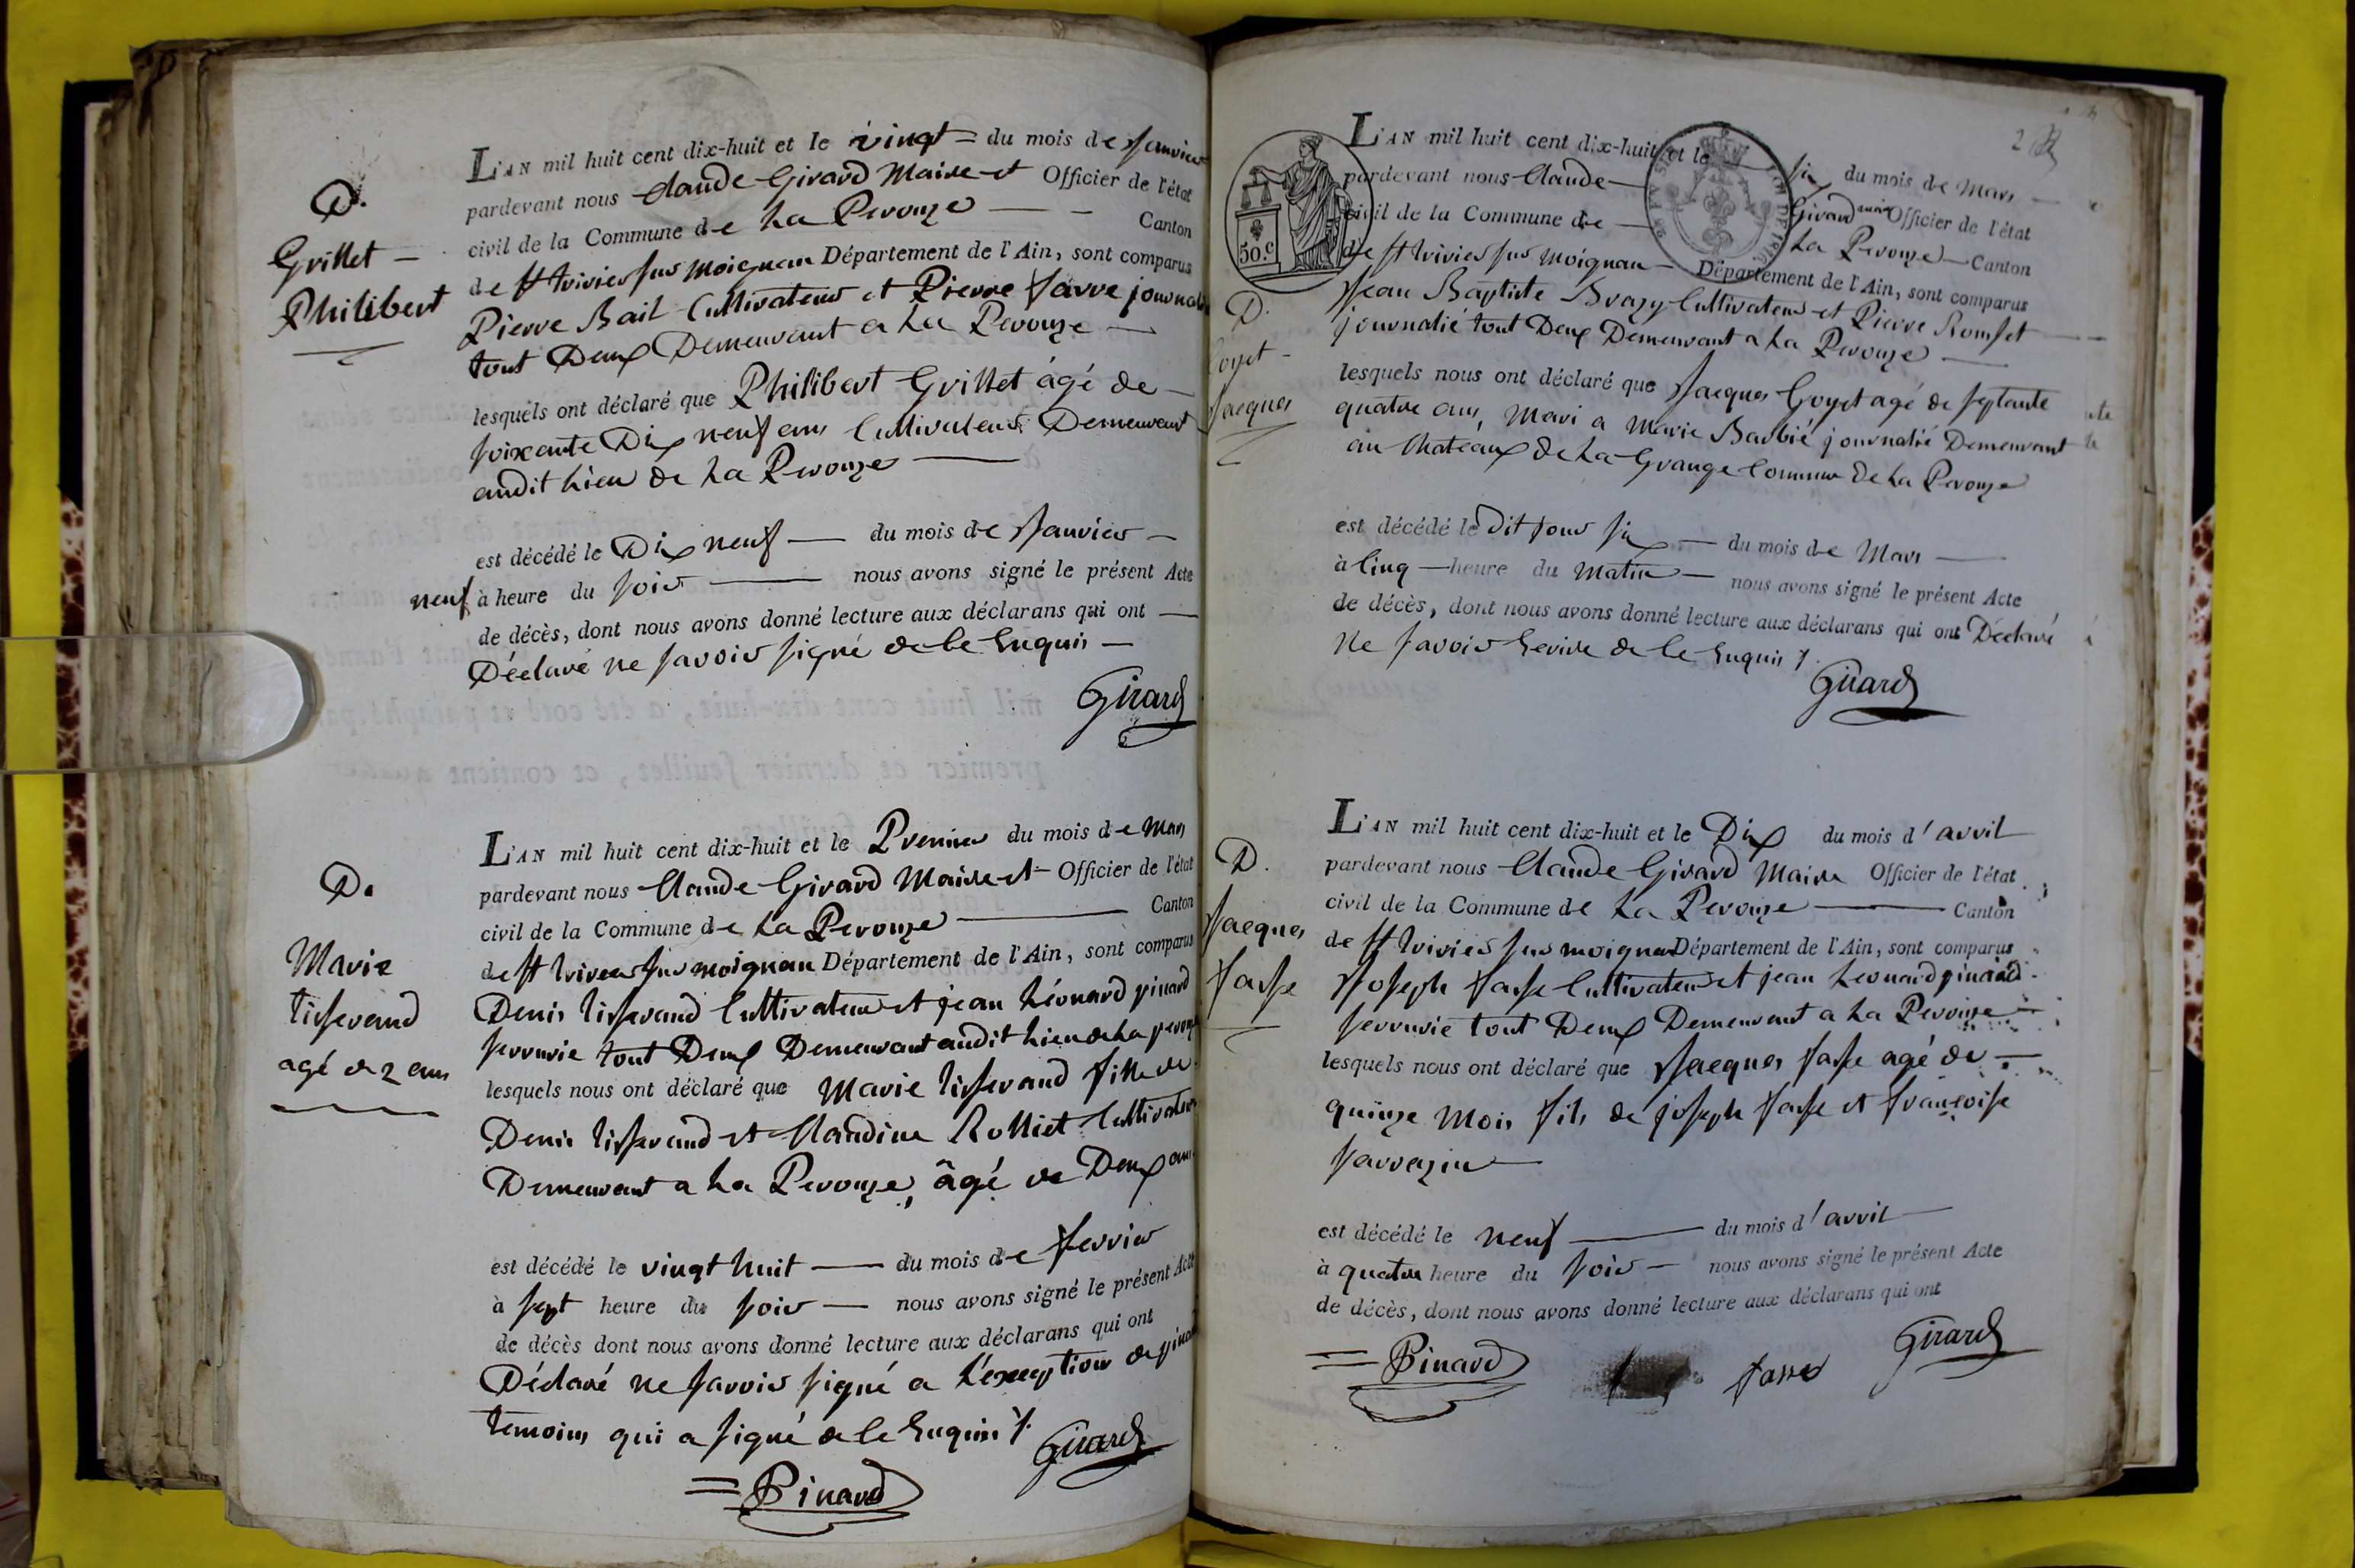 D.
Grillet —
Philibert
L'AN mil huit cent dix-huit et le vingt = du mois de Janvier
pardevant nous Claude Girard Maire et Officier de l'état
civil de la Commune de La Perouze — — Canton
de St trivier sur moignan Département de l'Ain, sont comparus
Pierre Bail Cultivateur et Pierre farre journalié
tout Deux Demeurant a La Perouze —
lesquels ont déclaré que Philibert Grillet âgé de —
soixante Dix neuf ans Cultivateur Demeurant
audit Lieu de La Perouze —
est décédé le Dix neuf — du mois de Janvier —
neuf à heure du soir — nous avons signé le présent Acte
de décès, dont nous avons donné lecture aux déclarans qui ont —
Déclaré ne savoir signé de Ce Enquis —
Girard
D.
Marie
tisserand
agé de 2 ans
L'AN mil huit cent dix-huit et le Premier du mois de Mars
pardevant nous Claude Girard Maire et Officier de l'état
civil de la Commune de La Perouze — Canton
de St trivier sur moignan Département de l'Ain, sont comparus
Denis tisserand Cultivateur et jean Léonard pinard
serrurie tout Deux Demeurant audit Lieu de La perouze
lesquels nous ont déclaré que Marie tisserand fille de
Denis tisserand et Claudine Rolliet Cultivateur
Demeurant a La Perouze, âgé de Deux ans
est décédé le vingt huit — du mois de fevrier
à sept heure du soir — nous avons signé le présent Acte
de décès dont nous avons donné lecture aux déclarans qui ont
Déclaré ne savoir signé a L'exception de pinard
temoins qui a signé de Ce Enquis /.
Girard
= Pinard
2
L'AN mil huit cent dix-huit et le six du mois de Mars —
pardevant nous Claude — Girard maire Officier de l'état
civil de la Commune de — La Perouze — Canton
de St trivier sur moignan — Département de l'Ain, sont comparus
50.c
Jean Baptiste Brazy Cultivateur et Pierre Romfet —
journalié tout Deux Demeurant a La Perouze —
D.
Goyet —
Jacques
lesquels nous ont déclaré que Jacques Goyet agé de septante
quatre ans, Mari a Marie Barbié journalié Demeurant
au Chateaux de La Grange Commune de La Perouze
est décédé le Dit jour six — du mois de Mars —
à Cinq — heure du Matin — nous avons signé le présent Acte
de décès, dont nous avons donné lecture aux déclarans qui ont Déclaré
Ne savoir Ecrire de Ce Enquis /.
Girard
D.
Jacques
fasse
L'AN mil huit cent dix-huit et le Dix du mois d'avril
pardevant nous Claude Girard Maire Officier de l'état
civil de la Commune de La Perouze — Canton
de St trivier sur moignan Département de l'Ain, sont comparus
Joseph fasse Cultivateur et jean Leonard pinard
serrurie tout Deux Demeurant a La Perouze —
lesquels nous ont déclaré que Jacques fasse agé de —
quinze Mois fils de joseph fasse et françoise
sarrazin —
est décédé le neuf — du mois d'avril —
à quatre heure du soir — nous avons signé le présent Acte
de décès, dont nous avons donné lecture aux déclarans qui ont
= Pinard fasse Girard